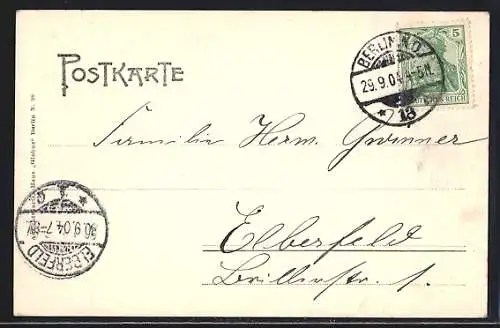 POSTKARTE
BERLIN N.O.
29.9.04. 4-5N.
* 18
5
DEUTSCHES REICH
Familie Herm. Gwinner
Elberfeld
Brillerstr. 1.
ELBERFELD
30.9.04. 7-8V.
"Globus" Berlin N.